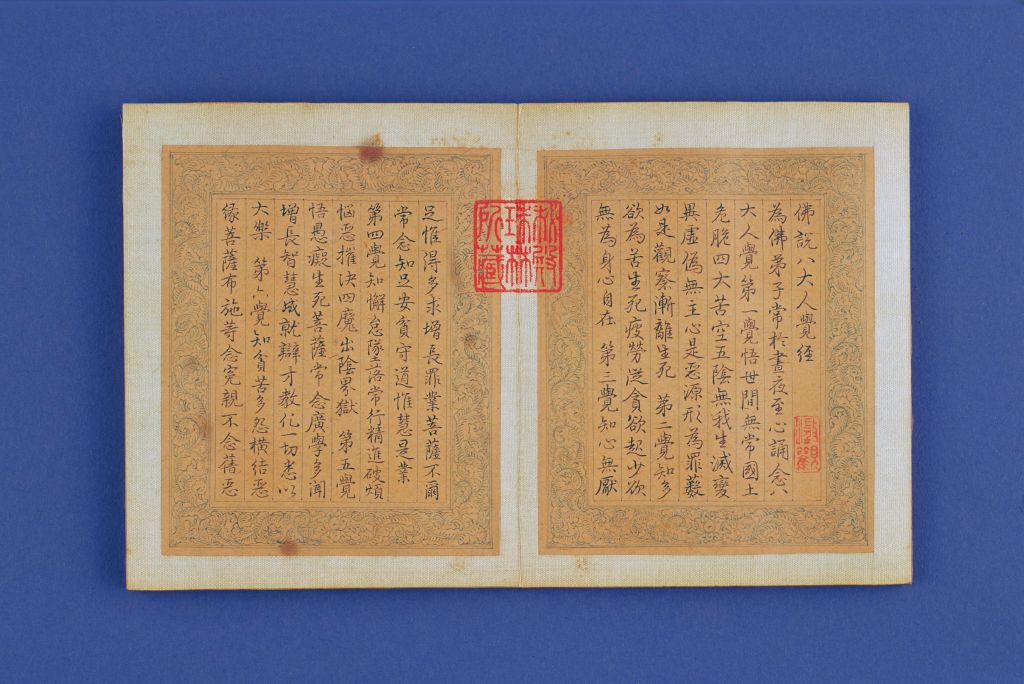 佛說八大人覺經
為佛弟子常於晝夜至心誦念八
大人覺第一覺悟世間無常國土
危脆四大苦空五陰無我生滅變
異虛偽無主心是惡源形為罪藪
如是觀察漸離生死 第二覺知多
欲為苦生死疲勞從貪欲起少欲
無為身心自在 第三覺知心無厭
秘殿
珠林
所藏
足惟得多求增長罪業菩薩不爾
常念知足安貧守道惟慧是業
第四覺知懈怠墜落常行精進破煩
惱惡摧伏四魔出陰界獄 第五覺
悟愚癡生死菩薩常念廣學多聞
增長智慧成就辯才教化一切悉以
大樂 第六覺知貧苦多怨橫結惡
緣菩薩布施等念冤親不念舊惡